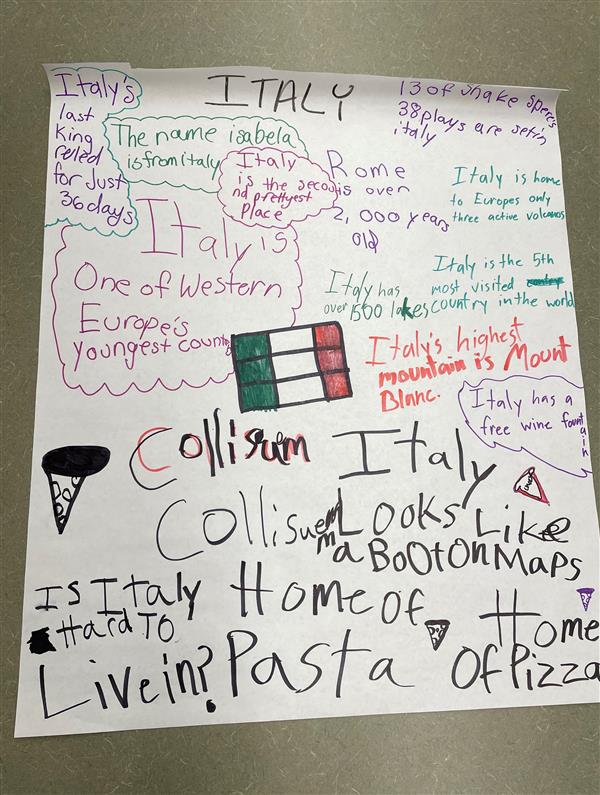 ITALY
Italy's
last
king
reled
for Just
36 days
The name isabela
is from italy
Italy
is the secou
nd prettyest
Place
Rome
is over
2,000 years
old
13 of shake spere's
38 plays are set in
italy
Italy is home
to Europes only
three active volcanos
Italy is
One of Western
Europe's
youngest country
Italy has
over 1500 lakes
Italy is the 5th
most visited
country in the world
Italy's highest
mountain is Mount
Blanc.
Italy has a
free wine fountain
Collisuem
Italy
Collisuem
Looks Like
a BootOnMaps
Is Italy
Hard TO
Live in?
Home of
Pasta
Home
Of Pizza